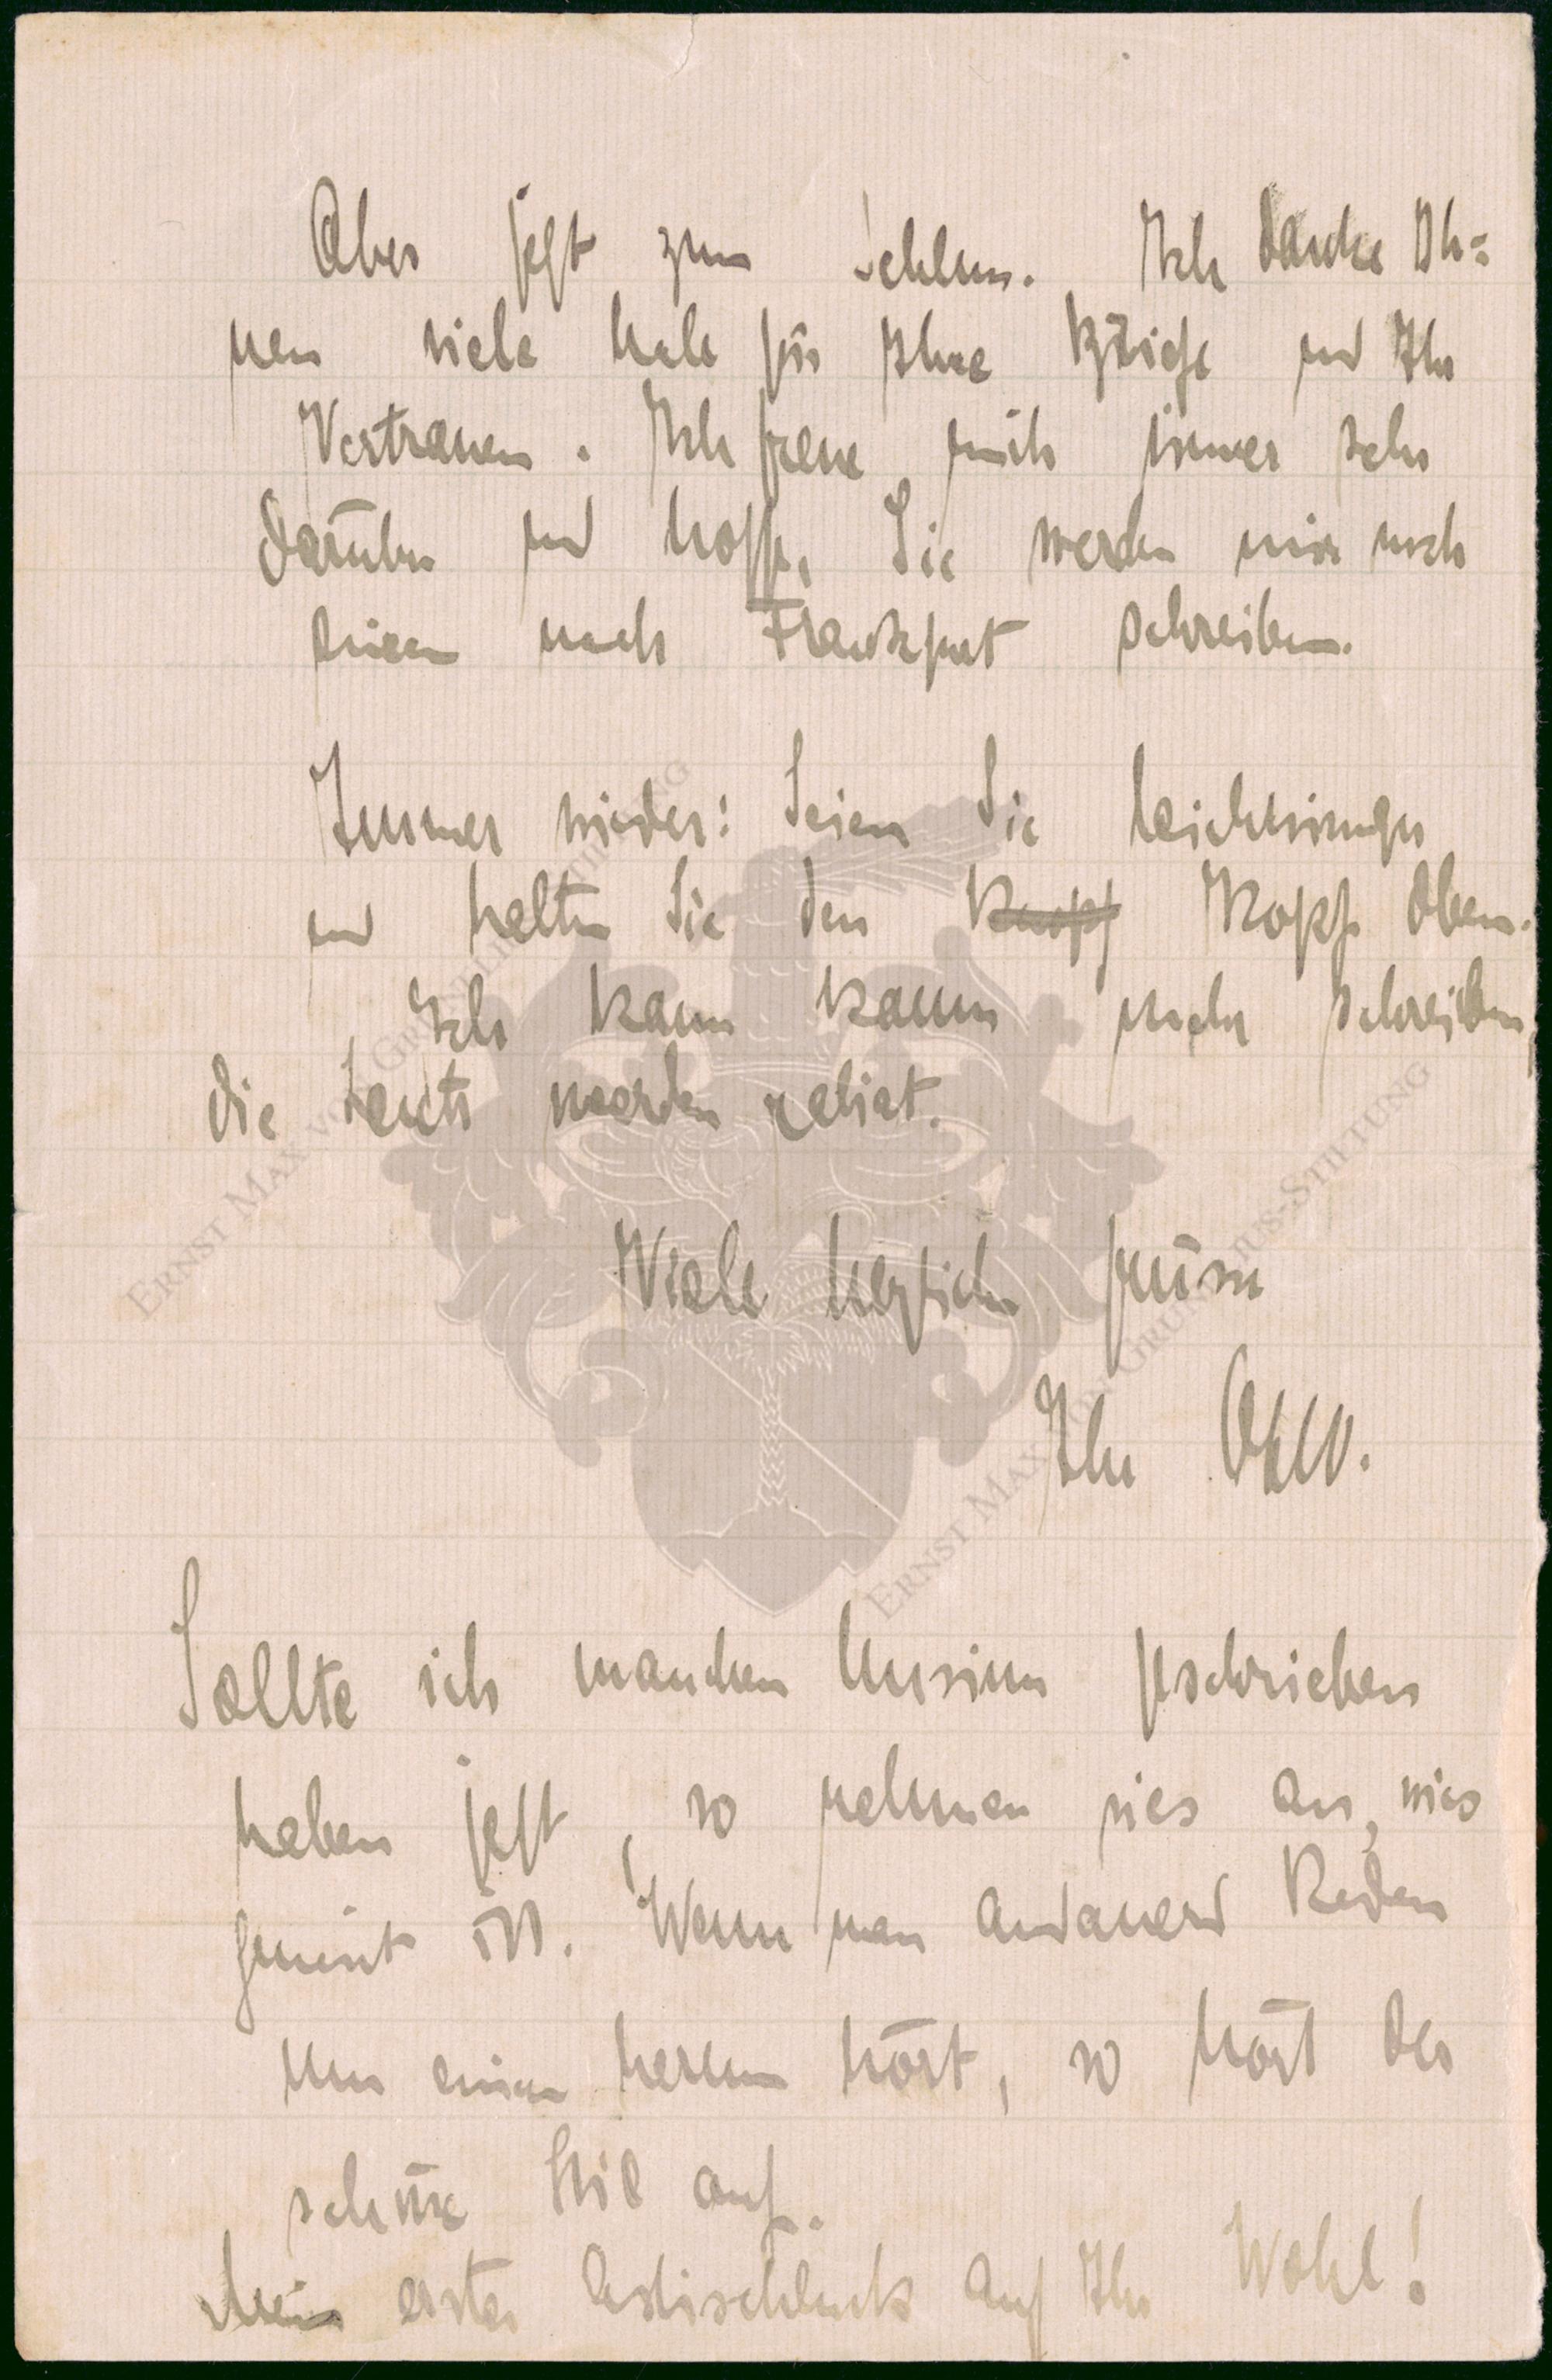 Aber jetzt zum Schluss. Ich danke Ih=
nen viele male für Ihre Briefe und Ihr
Vertrauen. Ich freue mich immer sehr
darüber und hoffe, Sie werden mir noch
einen nach Frankfurt schreiben.
Immer wieder: Seien Sie leichtsinniger
und halten Sie den Knopf Kopf oben.
Ich kann kaum mehr schreiben
die Leute werden rabiat.
Viele herzliche Grüsse
Ihr
Sollte ich manchen Unsinn geschrieben
haben jetzt, so nehmen sies an, wies
gemeint ist. Wenn man andauernd Reden
um einen herum hört, so hört der
schöne Stil auf.
Mein erster Astischluck auf Ihr Wohl!
ERNST MAX VON GRUNELIUS-STIFTUNG
ERNST MAX VON GRUNELIUS-STIFTUNG